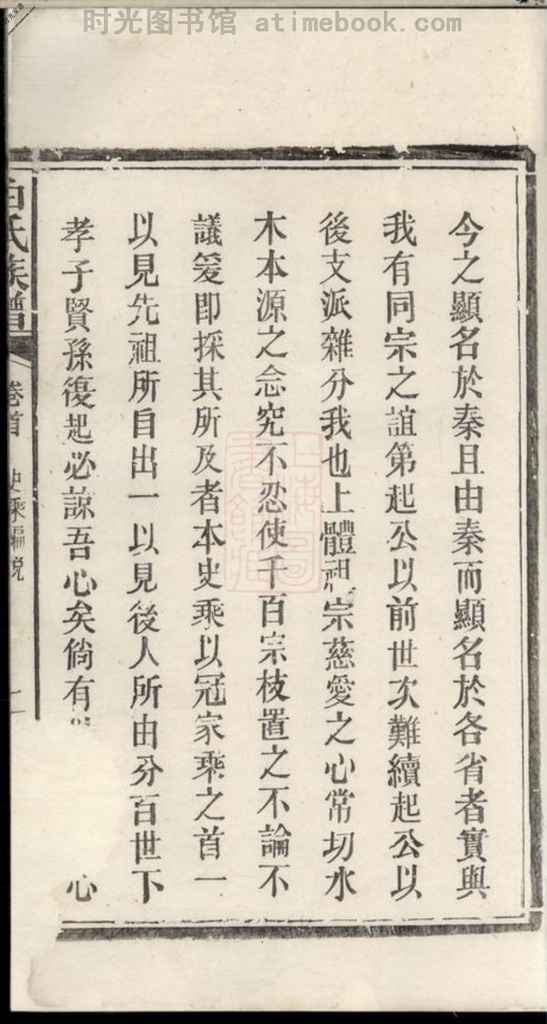 时光图书馆 atimebook.com
今之顯名於秦且由秦而顯名於各省者實與
我有同宗之誼第起公以前世次難續起公以
後支派雜分我也上體祖宗慈愛之心常切水
木本源之念究不忍使千百宗枝置之不論不
議爰即採其所及者本史乘以冠家乘之首一
以見先祖所自出一以見後人所由分百世下
孝子賢孫復起必諒吾心矣倘有 心
白氏族譜 卷首 史乘編說